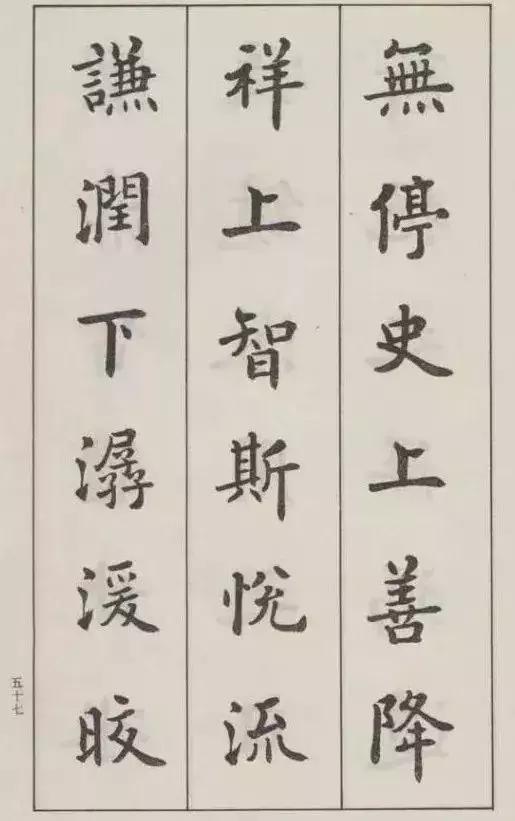 無停史上善降
祥上智斯悦流
謙潤下潺湲晈
五十七